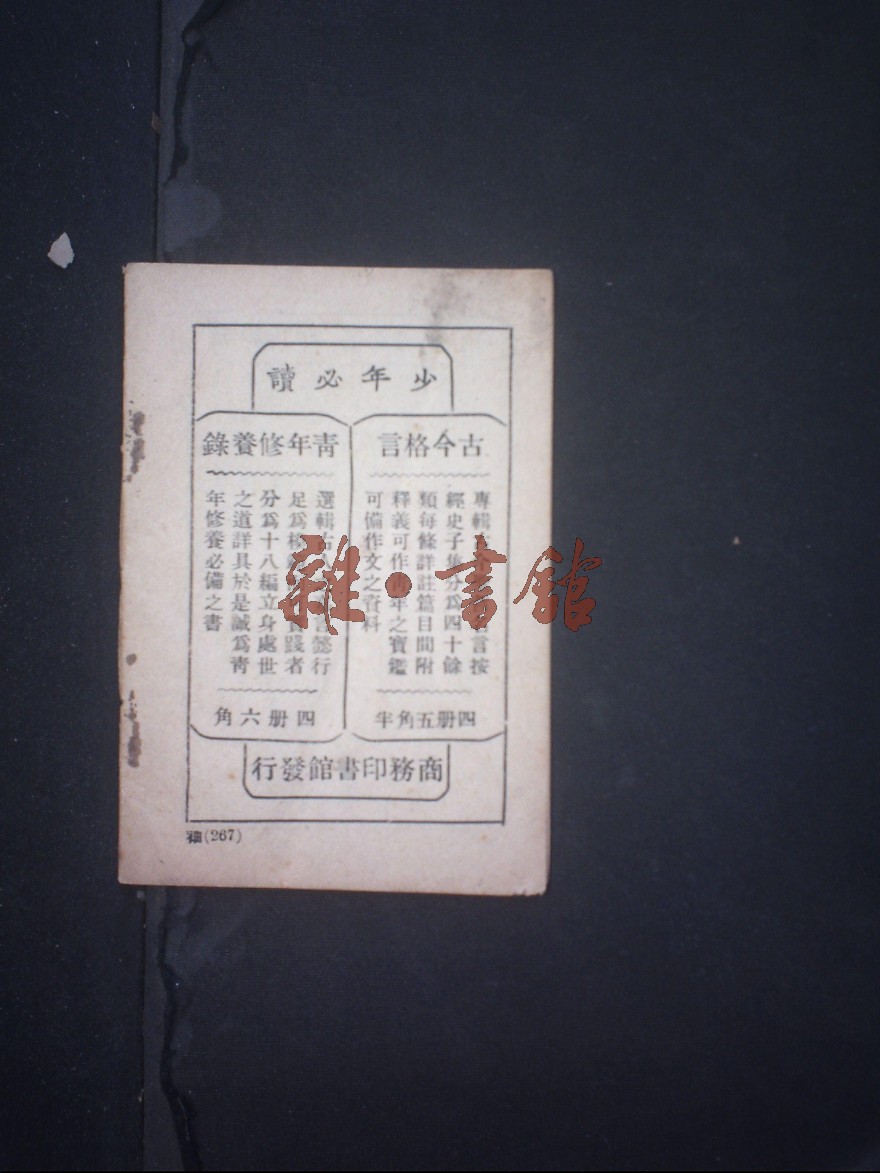 少年必讀
古今格言
專輯古今名言按
經史子集分爲四十餘
類每條詳註篇目間附
釋義可作青年之寶鑑
可備作文之資料
四册五角半
青年修養錄
選輯古人言懿行
足爲模踐者
分爲十八編立身處世
之道詳具於是誠爲靑
年修養必備之書
四册六角
商務印書館發行
(267)
雜·書館